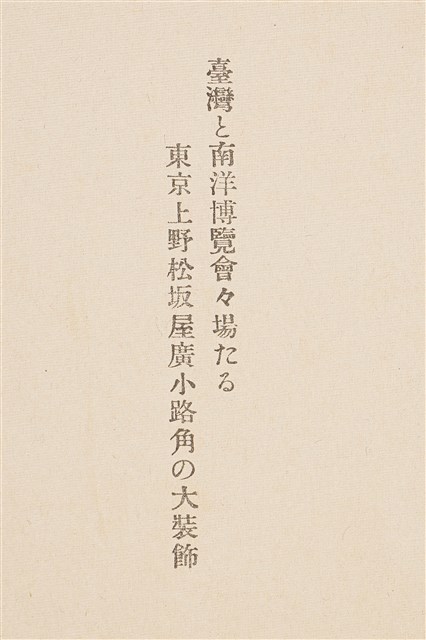 臺灣と南洋博覽會々場たる
東京上野松坂屋廣小路角の大裝飾